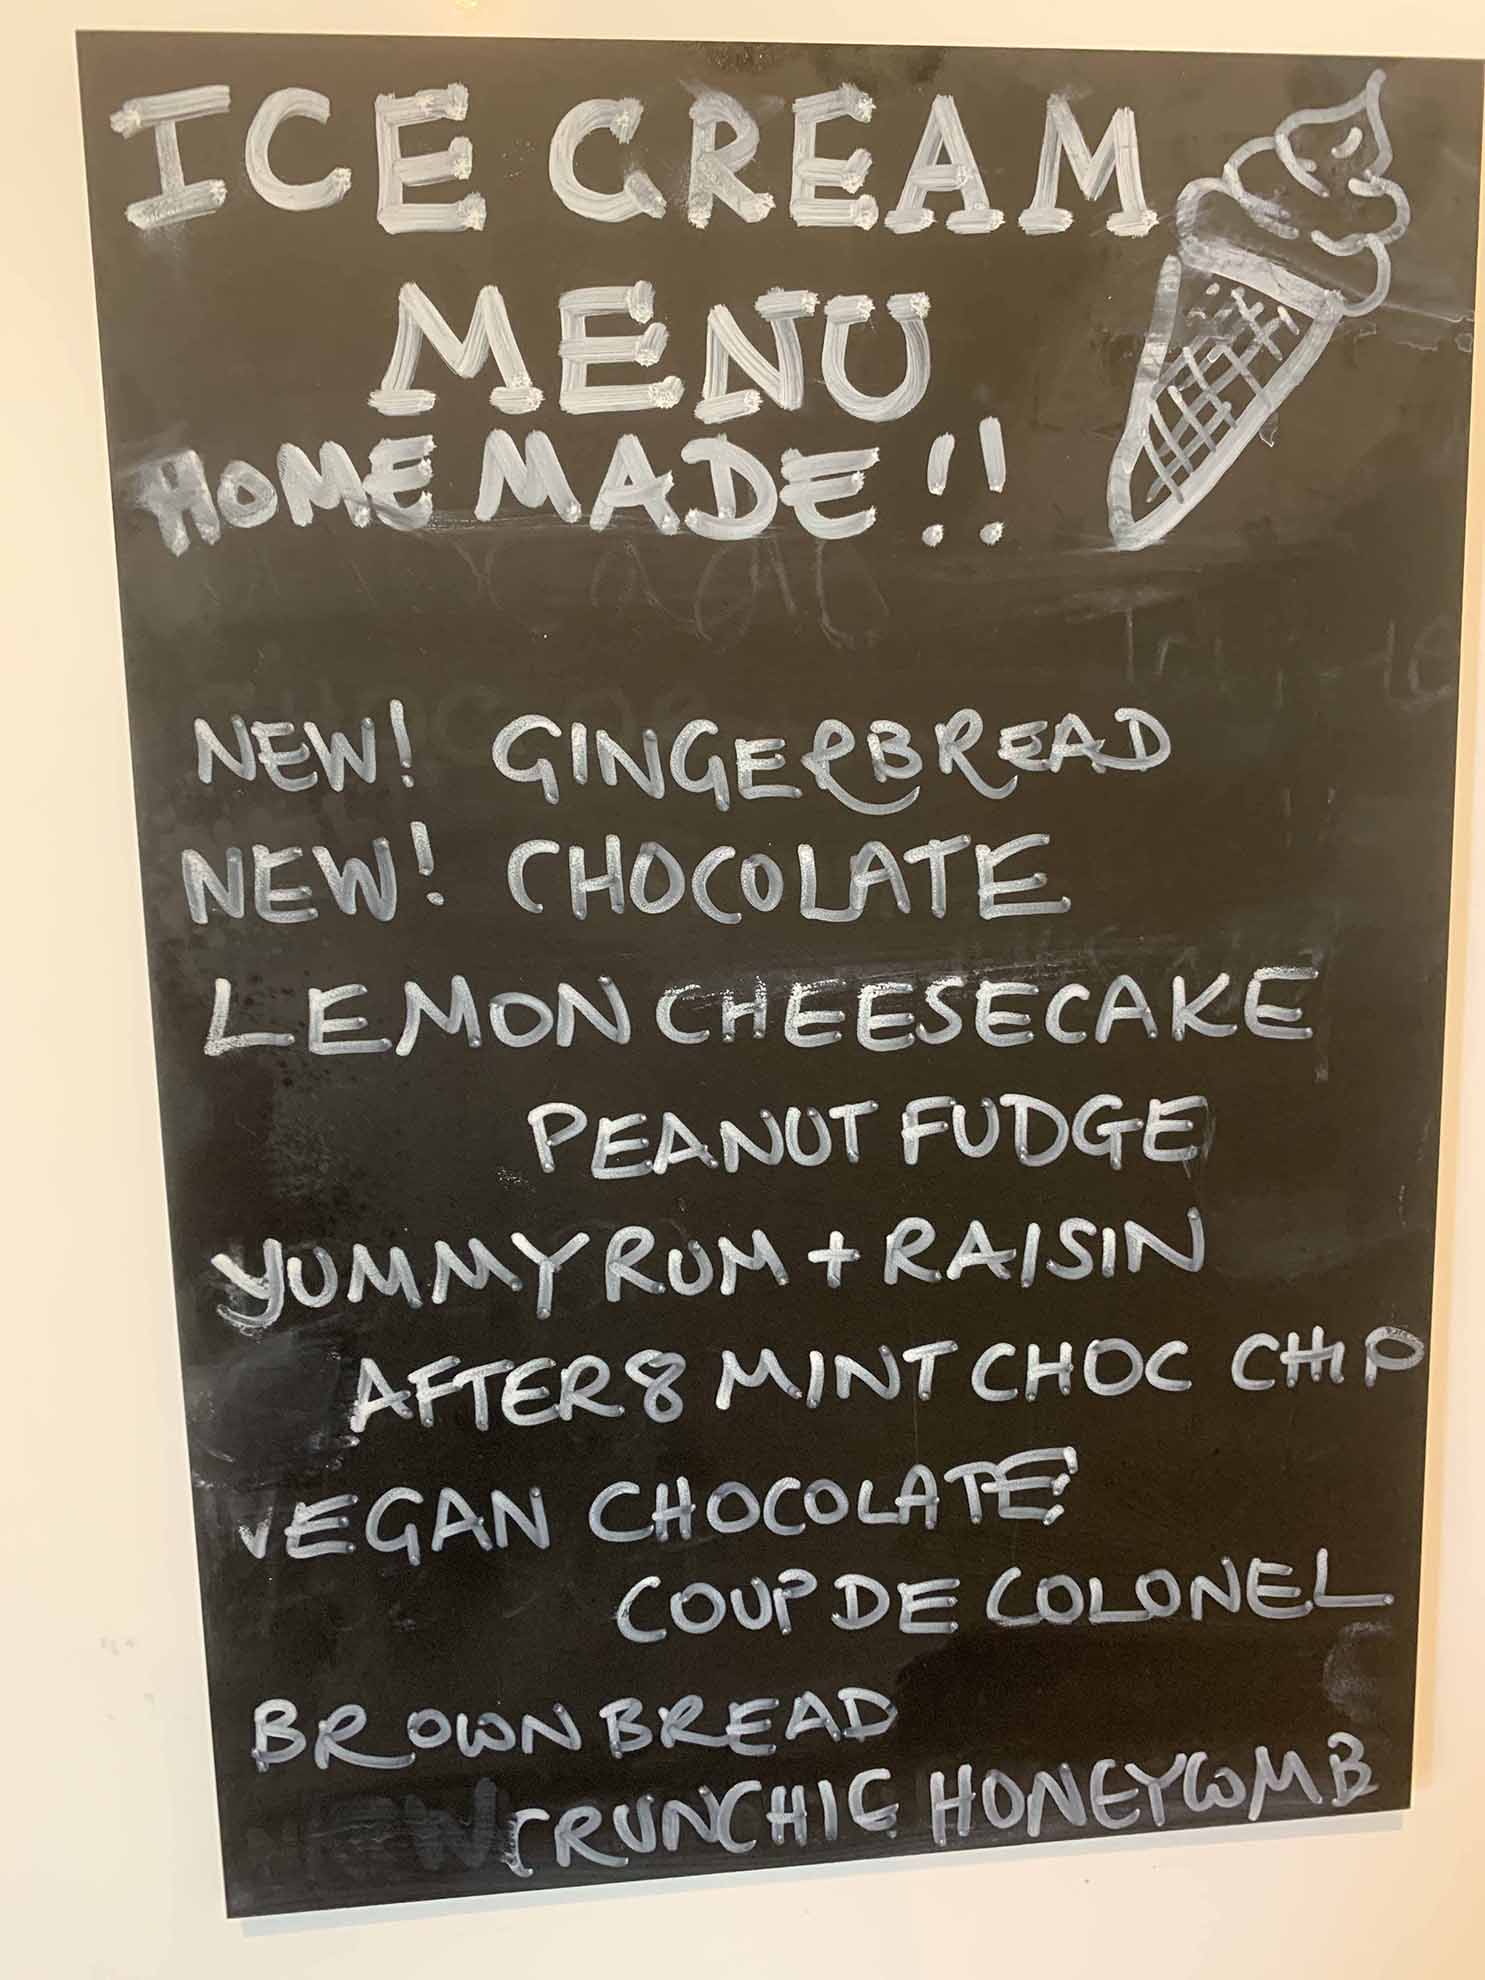 ICE CREAM
MENU
HOMEMADE!!
NEW! GINGERBREAD
NEW! CHOCOLATE
LEMON CHEESECAKE
PEANUT FUDGE
YUMMY RUM + RAISIN
AFTER 8 MINT CHOC CHIP
VEGAN CHOCOLATE!
COUP DE COLONEL
BROWN BREAD
CRUNCHIE HONEYCOMB